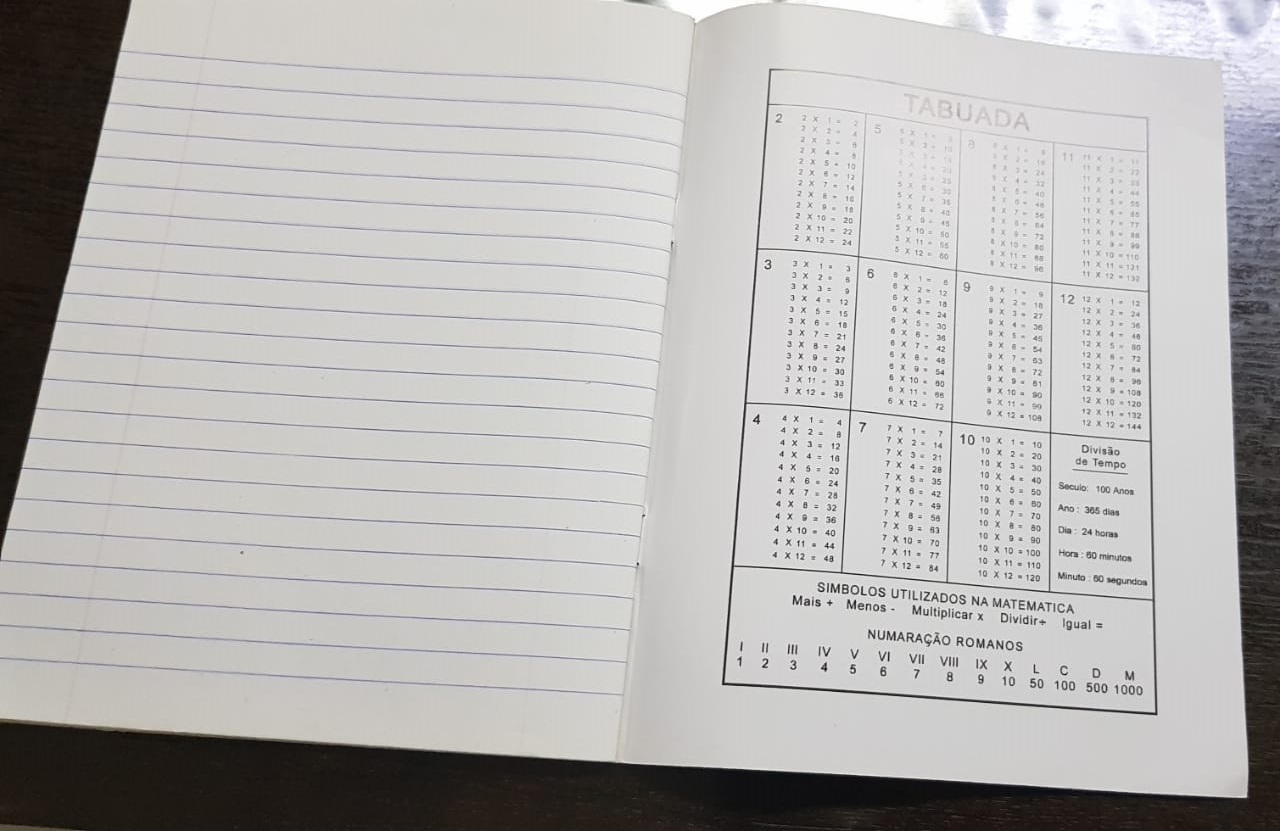 TABUADA
2
2 X 1 = 2
2 X 2 = 4
2 X 3 = 6
2 X 4 = 8
2 X 5 = 10
2 X 6 = 12
2 X 7 = 14
2 X 8 = 16
2 X 9 = 18
2 X 10 = 20
2 X 11 = 22
2 X 12 = 24
5
5 X 1 = 5
5 X 2 = 10
5 X 3 = 15
5 X 4 = 20
5 X 5 = 25
5 X 6 = 30
5 X 7 = 35
5 X 8 = 40
5 X 9 = 45
5 X 10 = 50
5 X 11 = 55
5 X 12 = 60
8
8 X 1 = 8
8 X 2 = 16
8 X 3 = 24
8 X 4 = 32
8 X 5 = 40
8 X 6 = 48
8 X 7 = 56
8 X 8 = 64
8 X 9 = 72
8 X 10 = 80
8 X 11 = 88
8 X 12 = 96
11
11 X 1 = 11
11 X 2 = 22
11 X 3 = 33
11 X 4 = 44
11 X 5 = 55
11 X 6 = 66
11 X 7 = 77
11 X 8 = 88
11 X 9 = 99
11 X 10 = 110
11 X 11 = 121
11 X 12 = 132
3
3 X 1 = 3
3 X 2 = 6
3 X 3 = 9
3 X 4 = 12
3 X 5 = 15
3 X 6 = 18
3 X 7 = 21
3 X 8 = 24
3 X 9 = 27
3 X 10 = 30
3 X 11 = 33
3 X 12 = 36
6
6 X 1 = 6
6 X 2 = 12
6 X 3 = 18
6 X 4 = 24
6 X 5 = 30
6 X 6 = 36
6 X 7 = 42
6 X 8 = 48
6 X 9 = 54
6 X 10 = 60
6 X 11 = 66
6 X 12 = 72
9
9 X 1 = 9
9 X 2 = 18
9 X 3 = 27
9 X 4 = 36
9 X 5 = 45
9 X 6 = 54
9 X 7 = 63
9 X 8 = 72
9 X 9 = 81
9 X 10 = 90
9 X 11 = 99
9 X 12 = 108
12
12 X 1 = 12
12 X 2 = 24
12 X 3 = 36
12 X 4 = 48
12 X 5 = 60
12 X 6 = 72
12 X 7 = 84
12 X 8 = 96
12 X 9 = 108
12 X 10 = 120
12 X 11 = 132
12 X 12 = 144
4
4 X 1 = 4
4 X 2 = 8
4 X 3 = 12
4 X 4 = 16
4 X 5 = 20
4 X 6 = 24
4 X 7 = 28
4 X 8 = 32
4 X 9 = 36
4 X 10 = 40
4 X 11 = 44
4 X 12 = 48
7
7 X 1 = 7
7 X 2 = 14
7 X 3 = 21
7 X 4 = 28
7 X 5 = 35
7 X 6 = 42
7 X 7 = 49
7 X 8 = 56
7 X 9 = 63
7 X 10 = 70
7 X 11 = 77
7 X 12 = 84
10
10 X 1 = 10
10 X 2 = 20
10 X 3 = 30
10 X 4 = 40
10 X 5 = 50
10 X 6 = 60
10 X 7 = 70
10 X 8 = 80
10 X 9 = 90
10 X 10 = 100
10 X 11 = 110
10 X 12 = 120
Divisão
de Tempo
Seculo: 100 Anos
Ano : 365 dias
Dia : 24 horas
Hora : 60 minutos
Minuto : 60 segundos
SIMBOLOS UTILIZADOS NA MATEMATICA
Mais + Menos - Multiplicar x Dividir÷ Igual =
NUMARAÇÃO ROMANOS
I II III IV V VI VII VIII IX X L C D M
1 2 3 4 5 6 7 8 9 10 50 100 500 1000